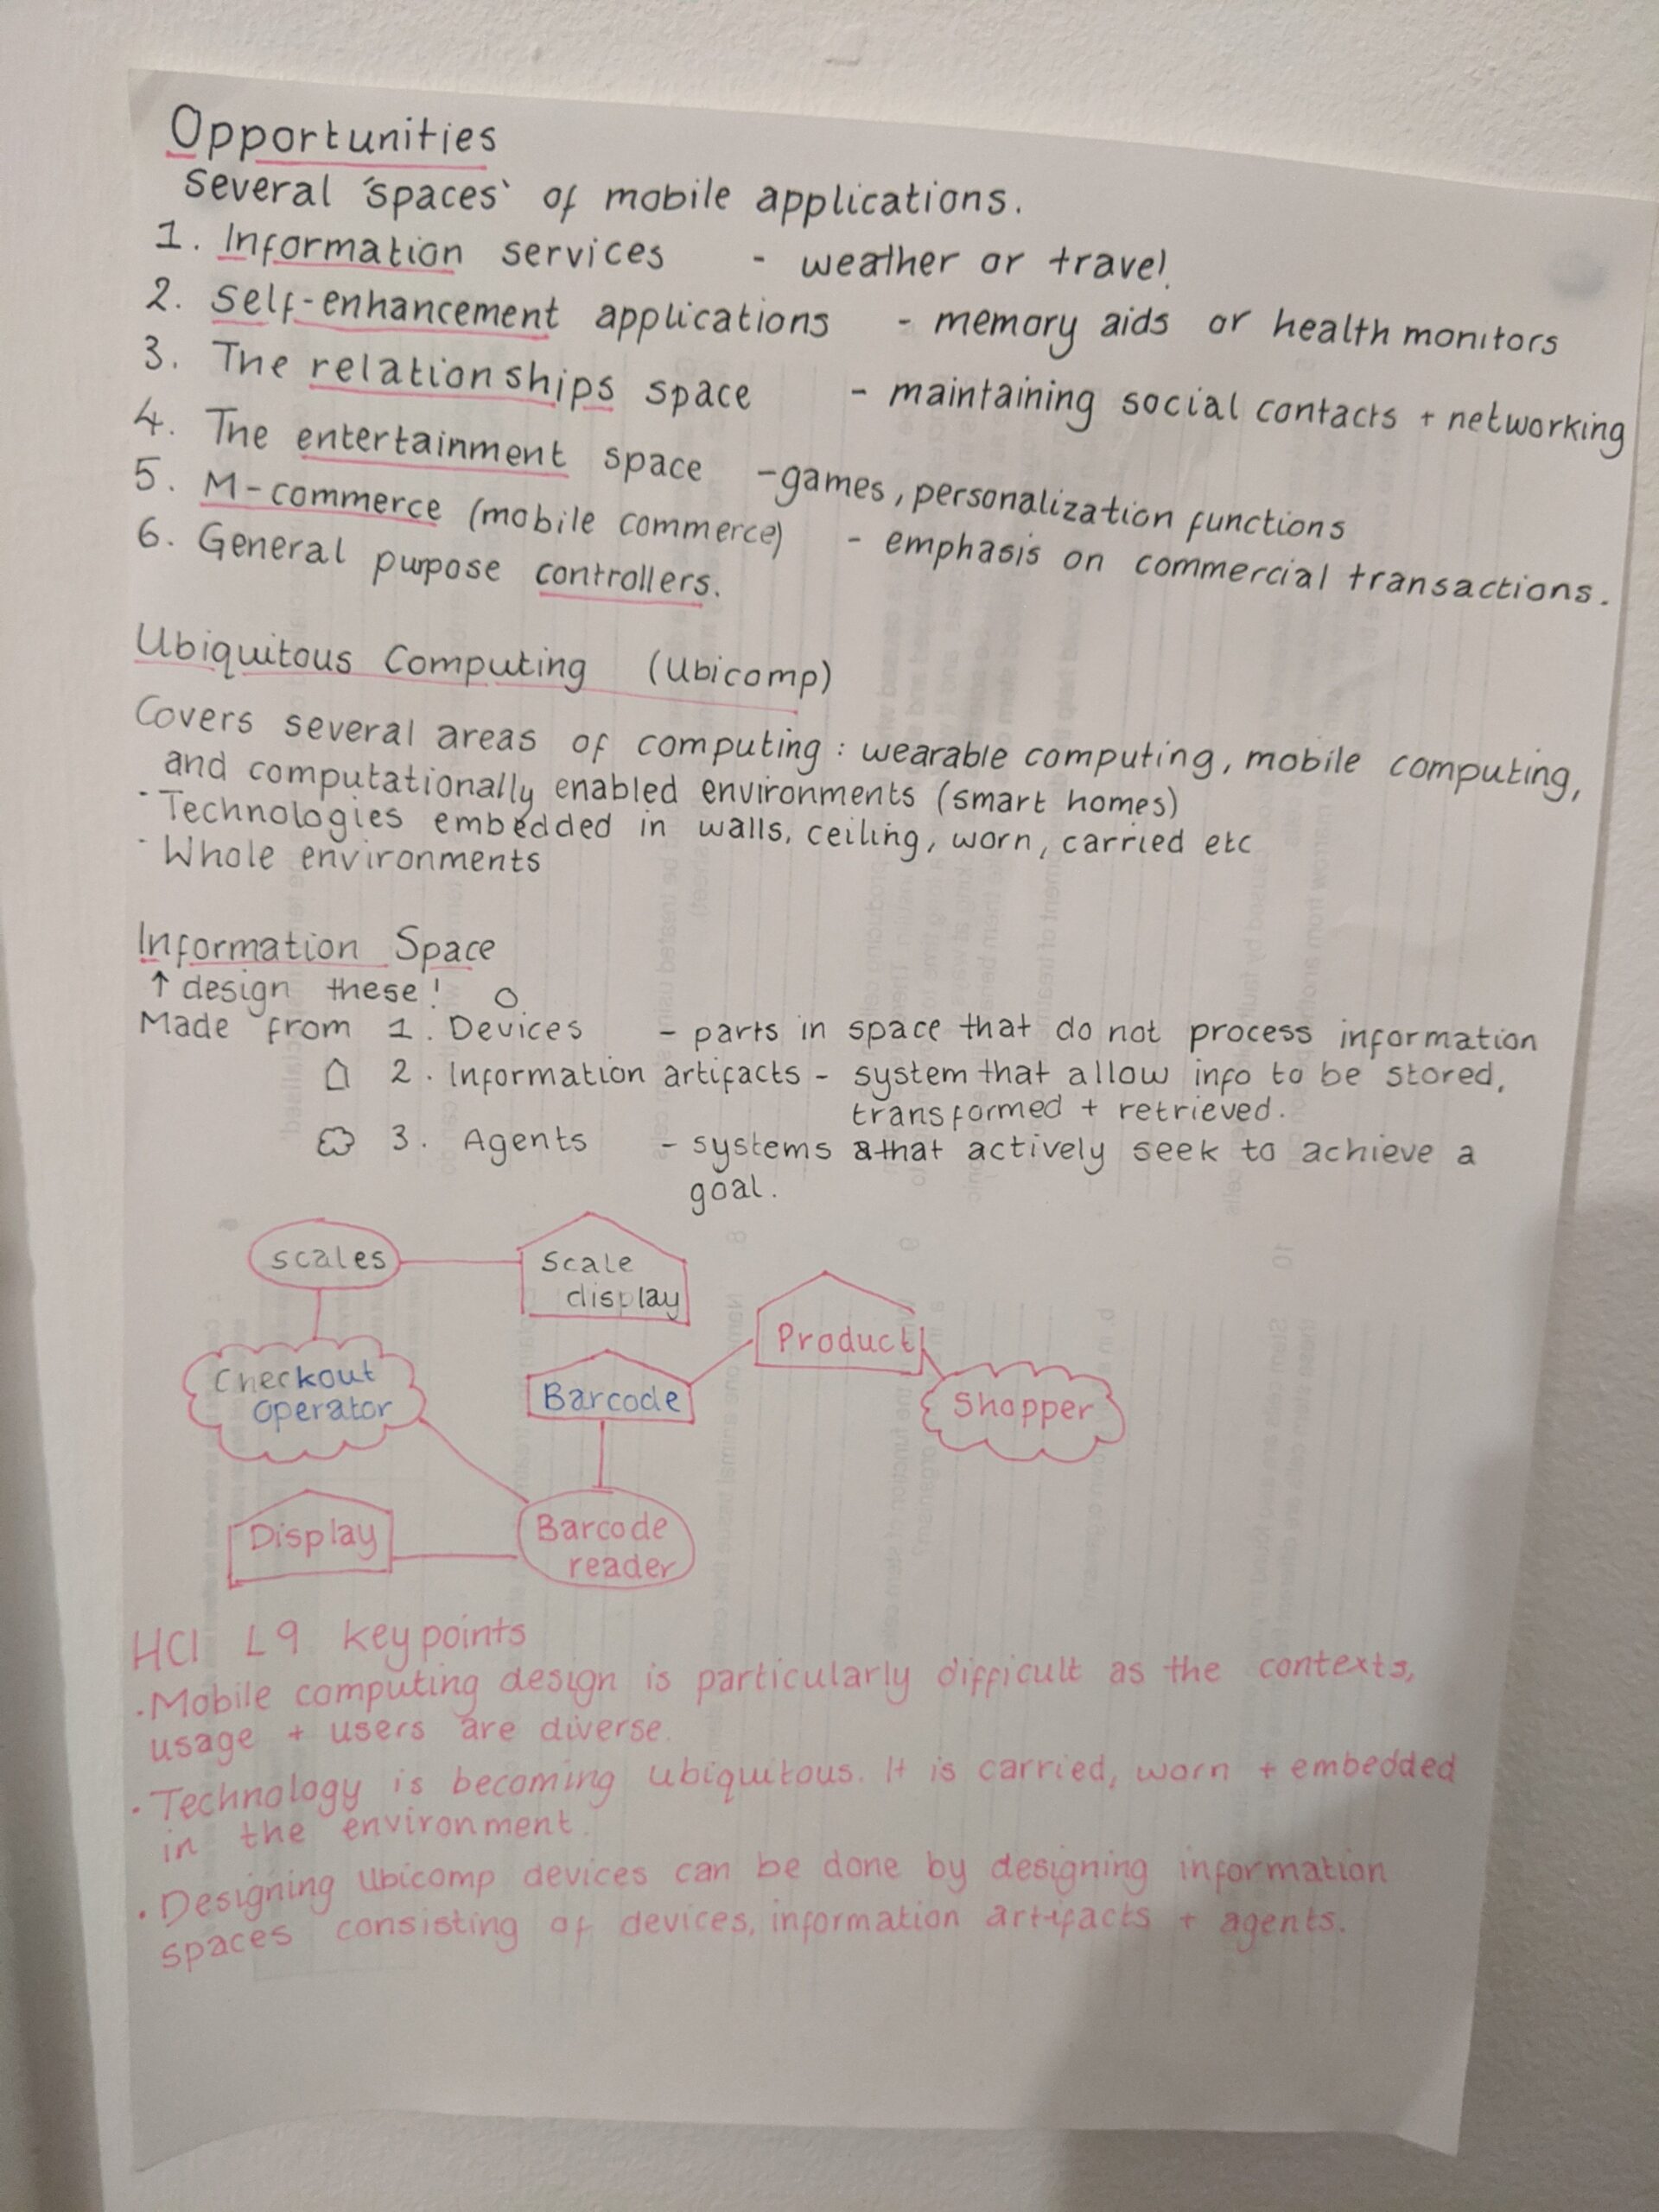 Opportunities
Several 'spaces' of mobile applications.
1. Information services - weather or travel.
2. Self-enhancement applications - memory aids or health monitors
3. The relationships space - maintaining social contacts + networking
4. The entertainment space - games, personalization functions
5. M-commerce (mobile commerce) - emphasis on commercial transactions.
6. General purpose controllers.
Ubiquitous Computing (Ubicomp)
Covers several areas of computing: wearable computing, mobile computing,
and computationally enabled environments (smart homes)
- Technologies embedded in walls, ceiling, worn, carried etc
- Whole environments
Information Space
↑ design these!
Made from 1. Devices - parts in space that do not process information
2. Information artifacts - system that allow info to be stored,
transformed + retrieved.
3. Agents - systems that actively seek to achieve a
goal.
scales
Scale
display
Product
Checkout
operator
Barcode
Shopper
Display
Barcode
reader
HCI L9 key points
· Mobile computing design is particularly difficult as the contexts,
usage + users are diverse.
· Technology is becoming ubiquitous. It is carried, worn + embedded
in the environment.
· Designing Ubicomp devices can be done by designing information
spaces consisting of devices, information artifacts + agents.